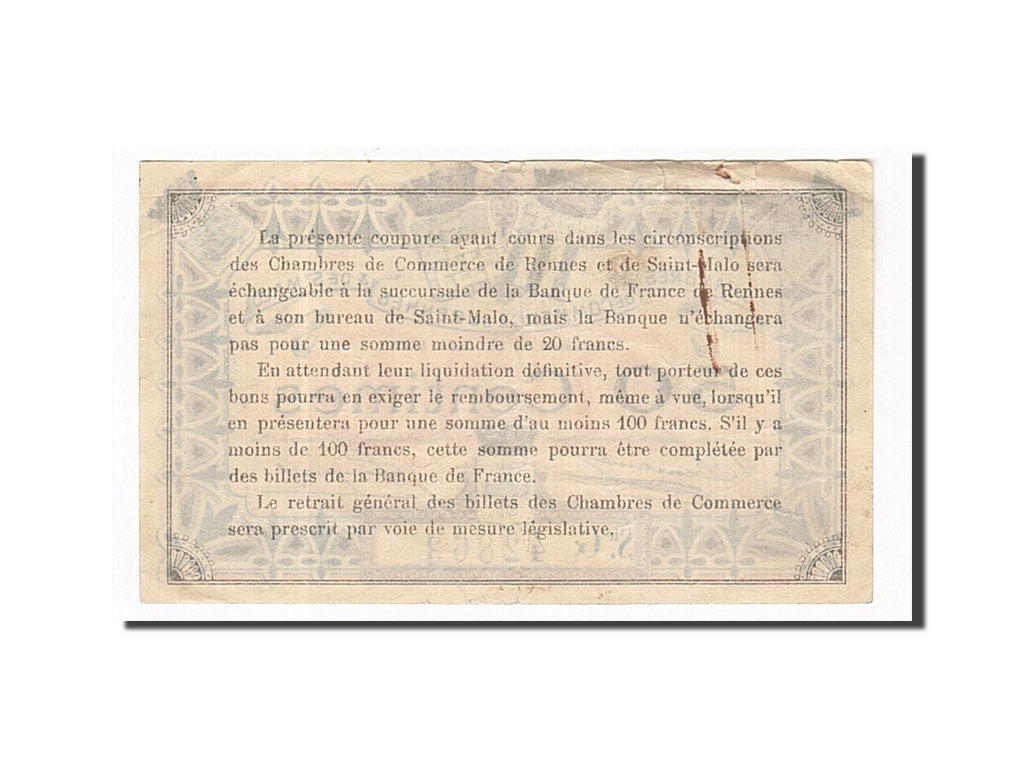 La présente coupure ayant cours dans les circonscriptions
des Chambres de Commerce de Rennes et de Saint-Malo sera
échangeable à la succursale de la Banque de France de Rennes
et à son bureau de Saint-Malo, mais la Banque n'échangera
pas pour une somme moindre de 20 francs.
En attendant leur liquidation définitive, tout porteur de ces
bons pourra en exiger le remboursement, même à vue, lorsqu'il
en présentera pour une somme d'au moins 100 francs. S'il y a
moins de 100 francs, cette somme pourra être complétée par
des billets de la Banque de France.
Le retrait général des billets des Chambres de Commerce
sera prescrit par voie de mesure législative.